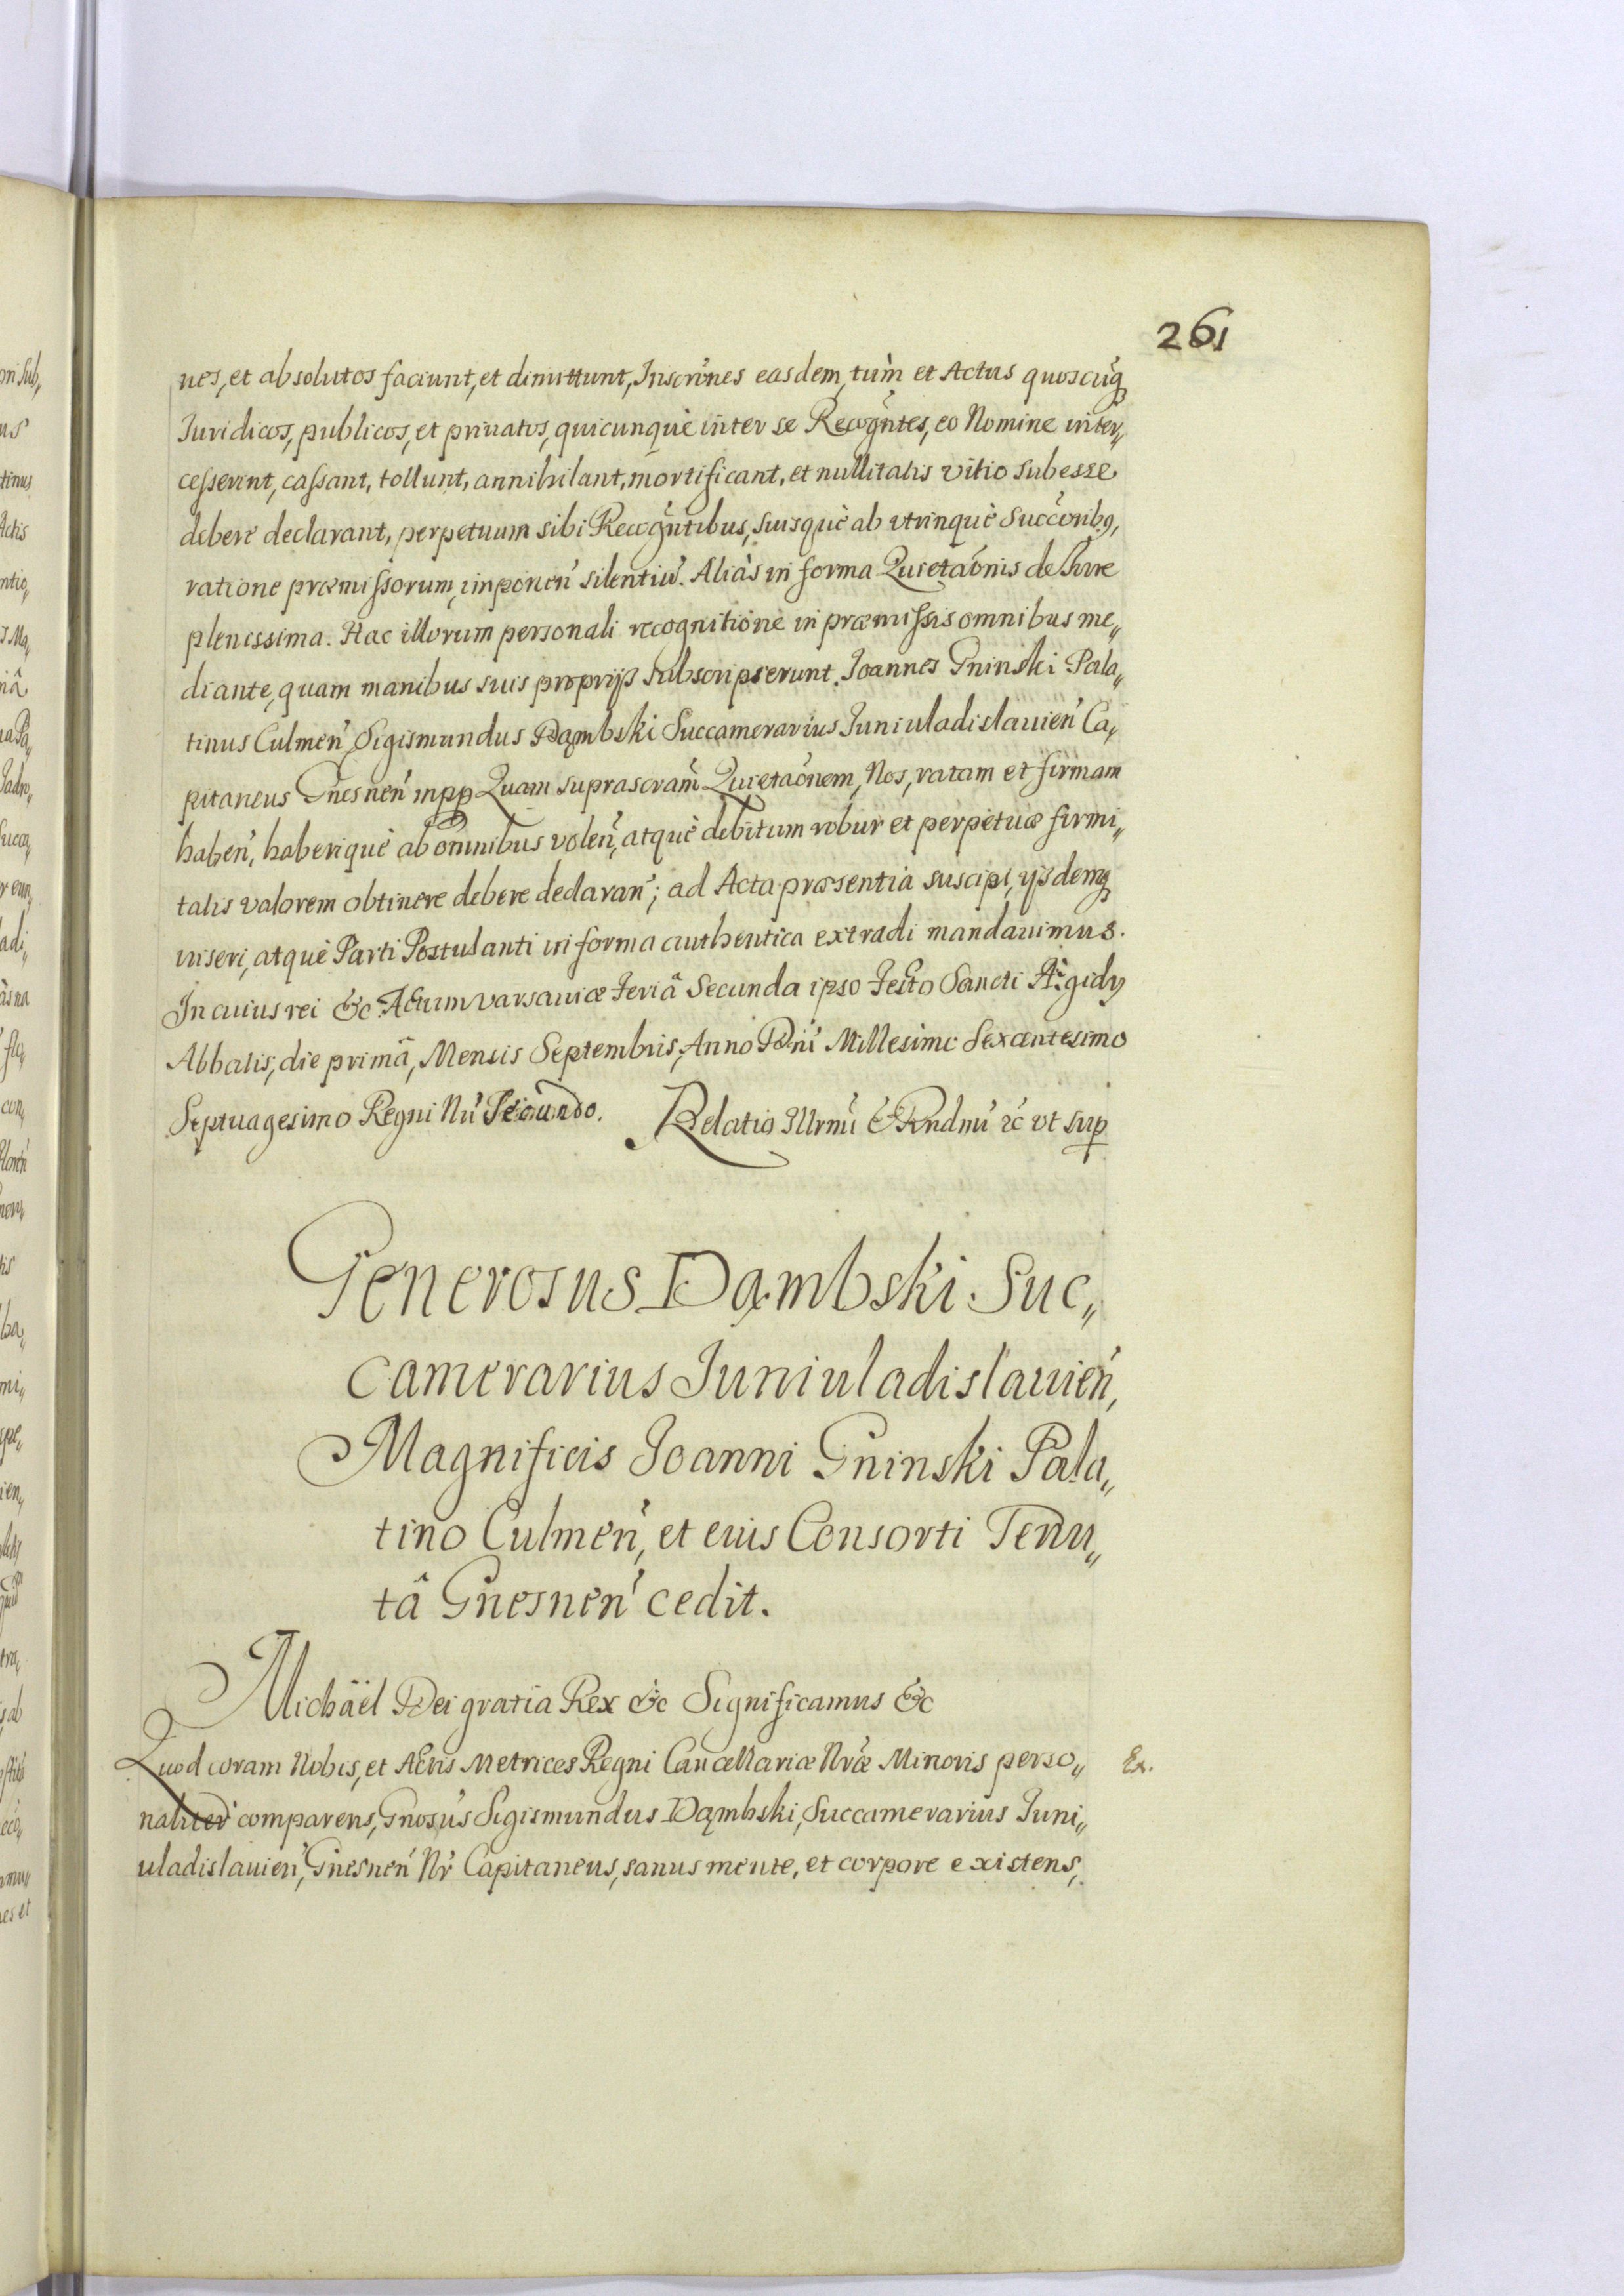 261
ues, et absolutos faciunt, et dimittunt, Inscrīnes easdem, tùm et Actus quoscūq
Iuridicos, publicos, et priuatos, quicunquè inter se Recogñtes, eo Nomine inter„
cesserint, cassant, tollunt, annihilant, mortificant, et nullitatis vitio subesse
debere declarant, perpetuum sibi Recogñtibus, suisquè ab vtrinquè Succorib9,
ratione præmissorum, imponeñ silentiū. Aliàs in forma Quietaōnis de Iure
plenissima. Hac illorum personali recognitione in præmissis omnibus me„
diante, quam manibus suis proprijs subscripserunt. Joannes Gninski Pala„
tinus Culmeñ, Sigismundus Dąmbski Succamerarius Juniuladislauieñ Ca„
pitaneus Gnesneñ mpp Quam suprascram̃ Quietaōnem, Nos, ratam et firmam
habeñ, haberiquè ab omnibus voleñ, atquè debitum robur et perpetuæ firmi„
tatis valorem obtinere debere declarañ; ad Acta præsentia suscipi, ijsdemq
inseri, atquè Parti Postulanti in forma authentica extradi mandauimus.
In cuius rei &c. Actum Varsauiæ Feriâ Secunda ipso Festo Sancti Ægidy
Abbatis, die primâ, Mensis Septembris, Anno Dñi Millesimo Sexcentesimo
Septuagesimo Regni Ñri Secundo. Relatio Illrmi & Rndmi &c vt sup
Generosus Dąmbski Suc„
camerarius Juniuladislauieñ,
Magnificis Joanni Gninski Pala„
tino Culmeñ, et eius Consorti Tenu„
tâ Gnesneñ cedit.
Michaël Dei gratia Rex &c Significamus &c
Quod coram Nobis, et Actis Metrices Regni Cancellariæ Nræ Minoris perso„ Ex.
naliter comparens, Gnosus Sigismundus Dąmbski, Succamerarius Juni„
uladislauieñ, Gnesneñ Nr Capitaneus, sanus mente, et corpore existens,